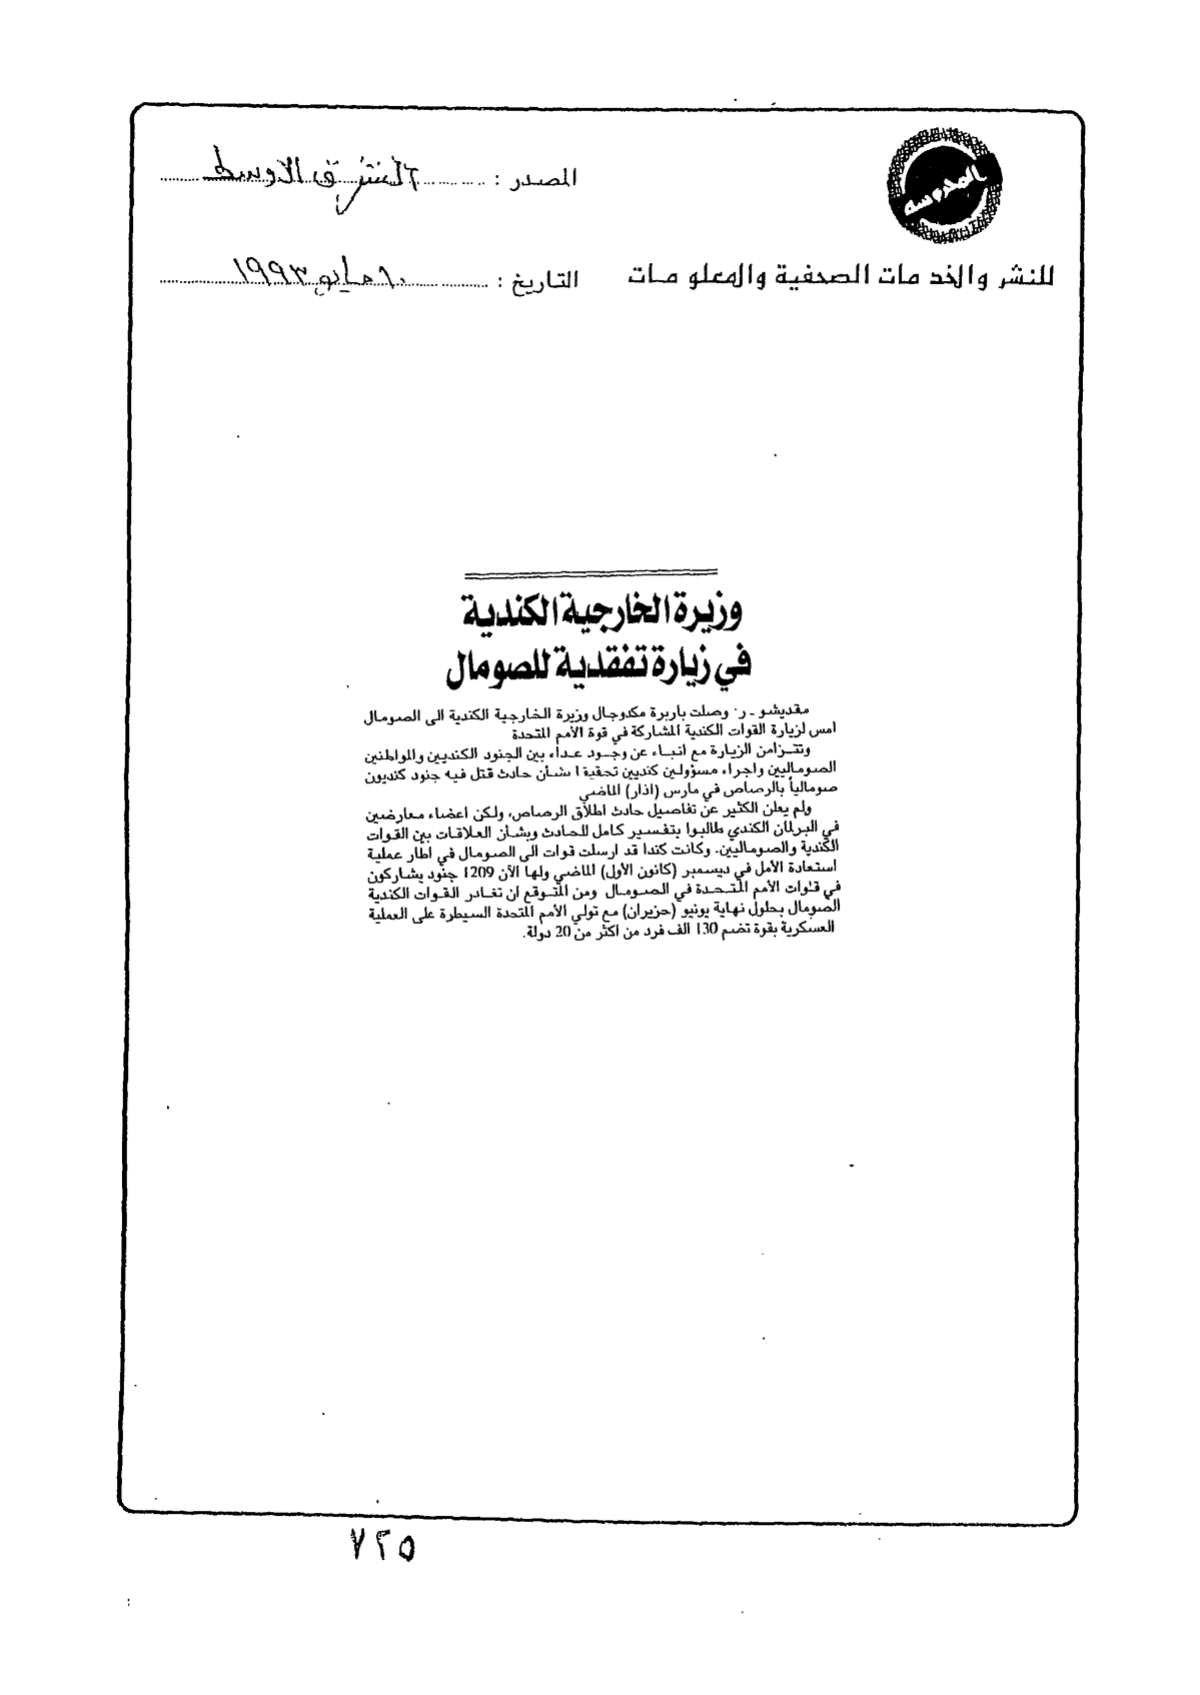 المدروسه
المصدر : الشرق الاوسط
للنشر والخدمات الصحفية والمعلومات
التاريخ : ١٠ مايو ١٩٩٣
وزيرة الخارجية الكندية
في زيارة تفقدية للصومال
مقديشو - ر. وصلت باربرة مكدوجال وزيرة الخارجية الكندية الى الصومال
امس لزيارة القوات الكندية المشاركة في قوة الأمم المتحدة
وتتزامن الزيارة مع انباء عن وجود عداء بين الجنود الكنديين والمواطنين
الصوماليين واجراء مسؤولين كنديين تحقيقا بشأن حادث قتل فيه جنود كنديون
صومالياً بالرصاص في مارس (اذار) الماضي
ولم يعلن الكثير عن تفاصيل حادث اطلاق الرصاص، ولكن اعضاء معارضين
في البرلمان الكندي طالبوا بتفسير كامل للحادث وبشأن العلاقات بين القوات
الكندية والصوماليين. وكانت كندا قد ارسلت قوات الى الصومال في اطار عملية
استعادة الأمل في ديسمبر (كانون الأول) الماضي ولها الآن 1209 جنود يشاركون
في قوات الأمم المتحدة في الصومال ومن المتوقع ان تغادر القوات الكندية
الصومال بحلول نهاية يونيو (حزيران) مع تولي الأمم المتحدة السيطرة على العملية
العسكرية بقوة تضم 130 الف فرد من اكثر من 20 دولة.
٧٢٥